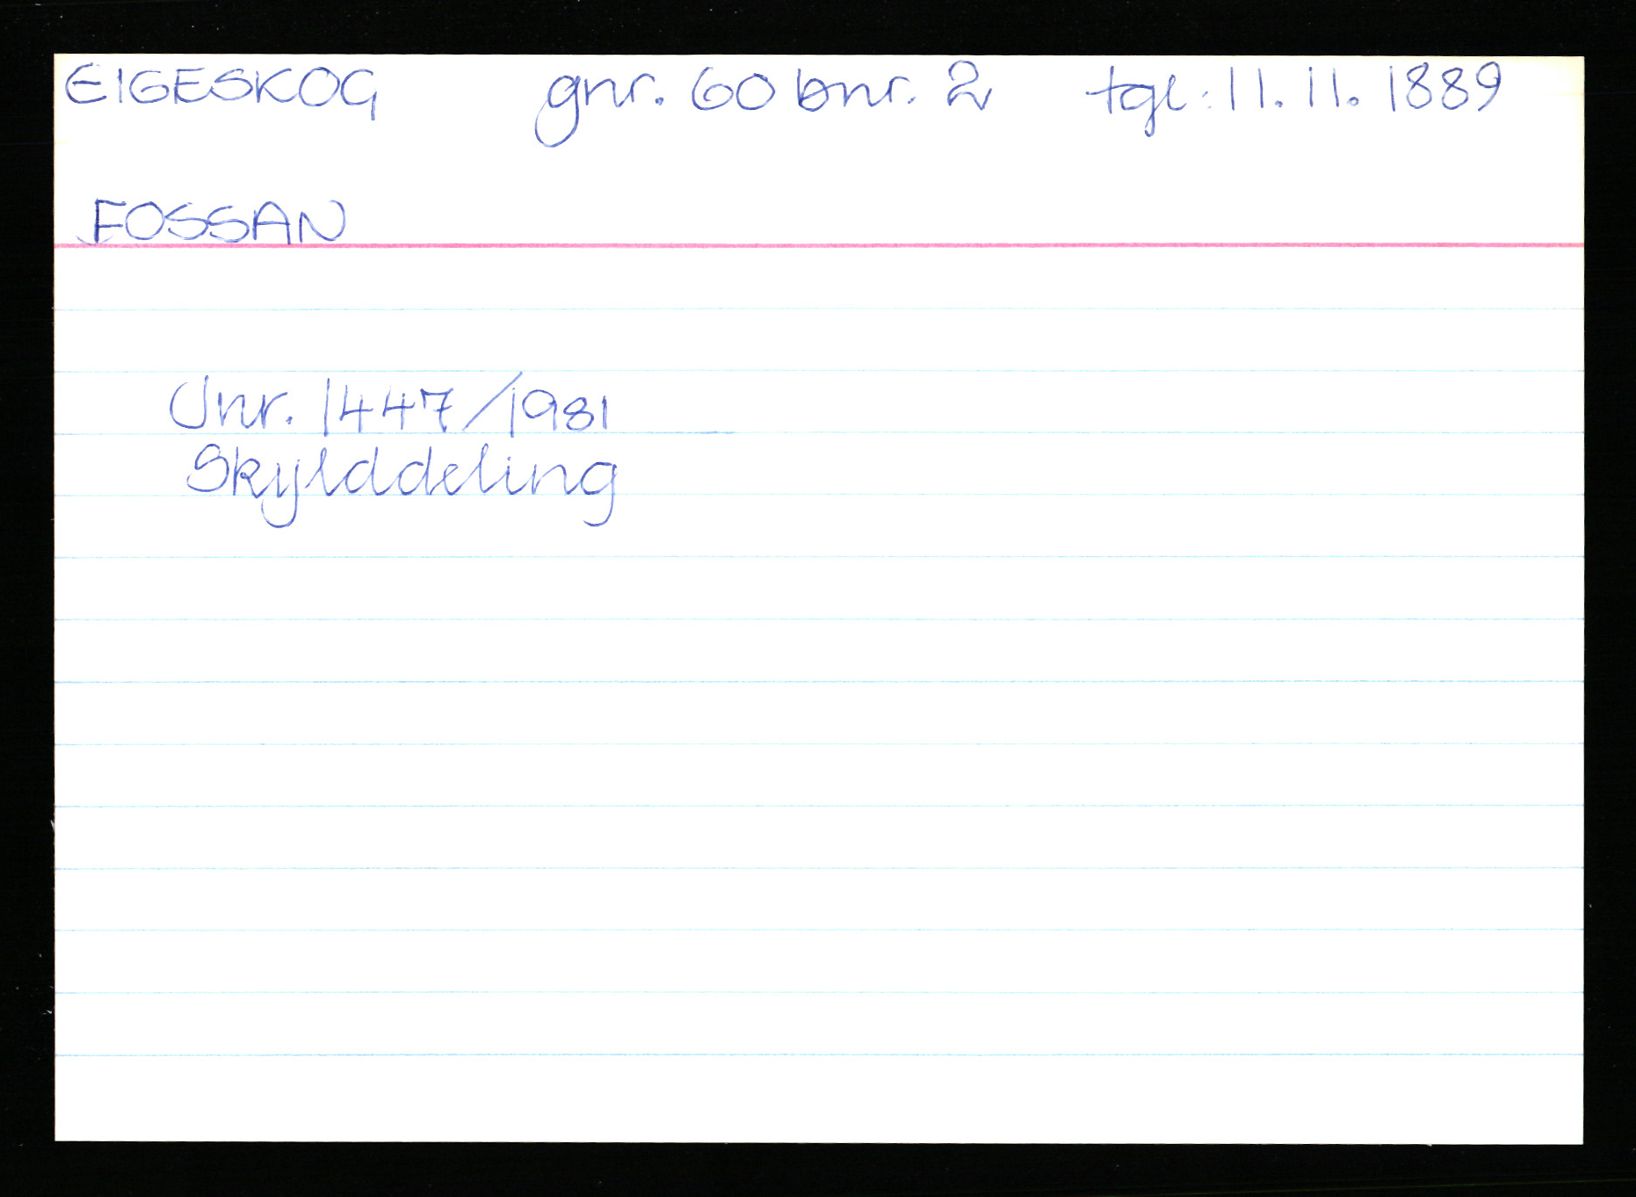 EIGESKOG gnr. 60 bnr. 2 tgl: 11.11.1889
FOSSAN
Jnr. 1447/1981
Skylddeling